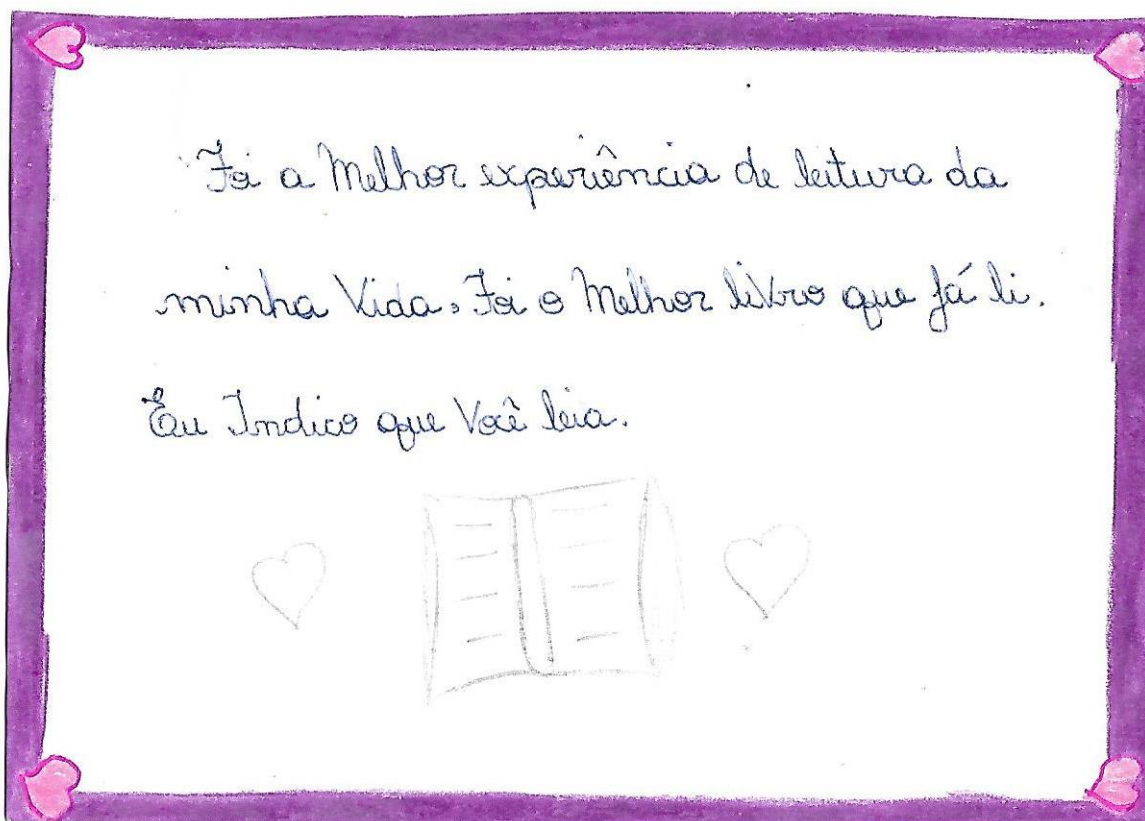 Foi a Melhor experiência de leitura da
minha Vida. Foi o Melhor liVro que já li.
Eu Indico que Você leia.